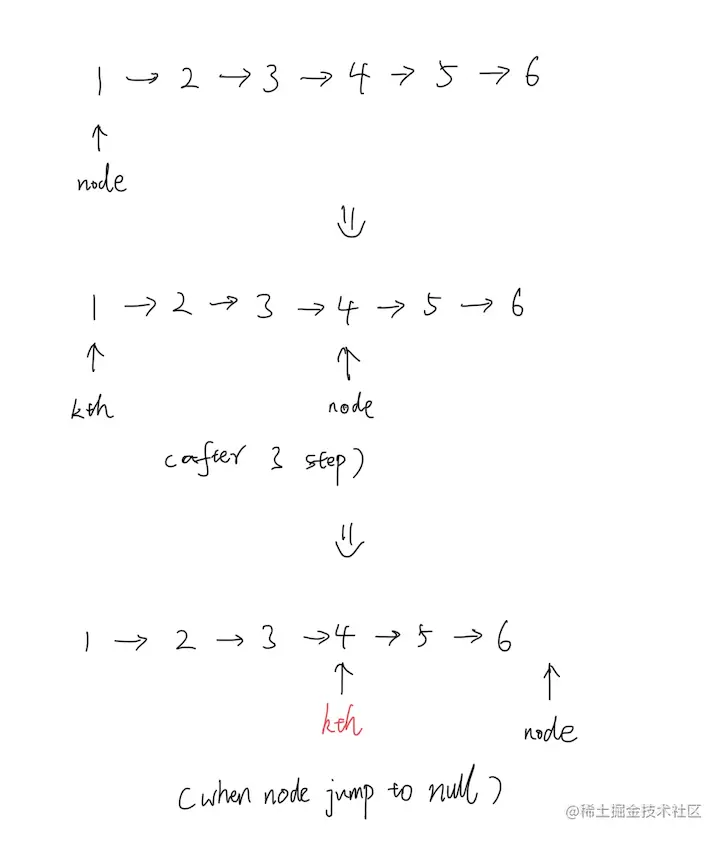 1 → 2 → 3 → 4 → 5 → 6
↑
node
⇓
1 → 2 → 3 → 4 → 5 → 6
↑ ↑
kth node
(after 3 step)
⇓
1 → 2 → 3 → 4 → 5 → 6
↑ ↑
kth node
(when node jump to null)
@稀土掘金技术社区